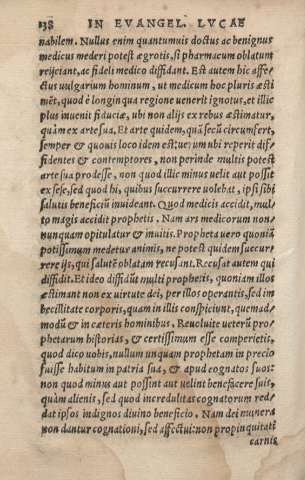 138 IN EVANGEL. LVCAE
nabilem. Nullus enim quantumuis doctus ac benignus
medicus mederi potest ægrotis, si pharmacum oblatum
reijciant, ac fideli medico diffidant. Est autem hic affe-
ctus uulgarium hominum, ut medicum hoc pluris æsti
mēt, quod è longinqua regione uenerit ignotus, et illic
plus inuenit fiduciæ, ubi non alijs ex rebus æstimatur,
quàm ex arte sua. Et arte quidem, quā secū circumfert,
semper & quouis loco idem est: uerum ubi reperit dif-
fidentes & contemptores, non perinde multis potest
arte sua prodesse, non quod illic minus uelit aut possit
ex sese, sed quod hi, quibus succurrere uolebat, ipsi sibi
salutis beneficiū inuideant. Quod medicis accidit, mul-
to magis accidit prophetis. Nam ars medicorum non-
nunquam opitulatur & inuitis. Propheta uero quoniā
potissimum medetur animis, ne potest quidem succur-
rere ijs, qui salutē oblatam recusant. Recusat autem qui
diffidit. Et ideo diffidūt multi prophetis, quoniam illos
æstimant non ex uirtute dei, per illos operantis, sed im
becillitate corporis, quam in illis conspiciunt, quemad-
modū & in cæteris hominibus. Reuoluite ueterū pro-
phetarum historias, & certissimum esse comperietis,
quod dico uobis, nullum unquam prophetam in precio
fuisse habitum in patria sua, & apud cognatos suos:
non quod minus aut possint aut uelint benefacere suis,
quàm alienis, sed quod incredulitas cognatorum red-
dat ipsos indignos diuino beneficio. Nam dei munera
non dantur cognationi, sed affectui: non propinquitati
carnis